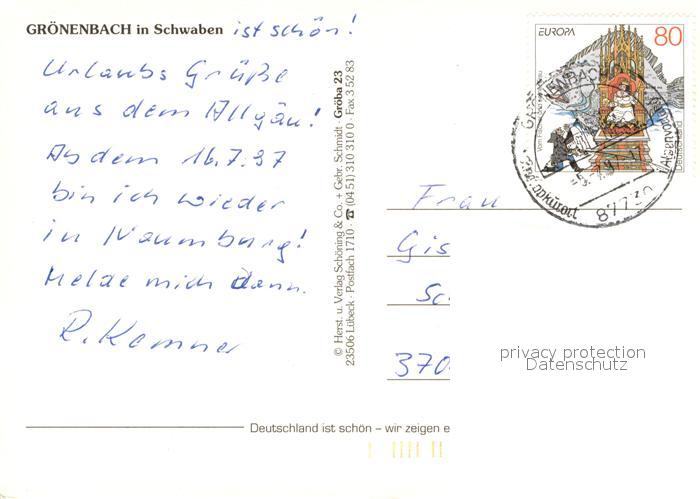 GRÖNENBACH in Schwaben ist schön!
Urlaubs Grüße
aus dem Allgäu!
Ab dem 16.7.97
bin ich wieder
in Naumburg!
Melde mich dann.
R. Kemner
© Herst. u. Verlag Schöning & Co. + Gebr. Schmidt · Gröba 23
23506 Lübeck · Postfach 1710 · ☎ (04 51) 310 310 0 · Fax 3 52 83
EUROPA 80
Deutschland
87730
Frau
Gis
Sc
370
privacy protection
Datenschutz
Deutschland ist schön – wir zeigen e